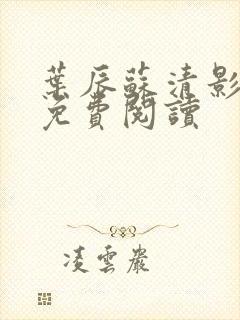 葉辰蘇清影
免費閱讀
凌雲巖